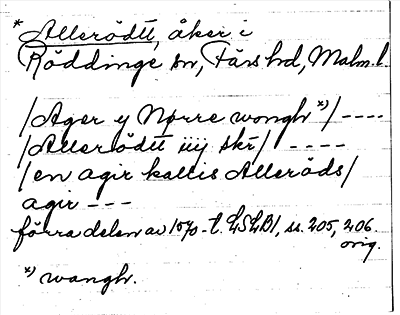 * Allerödtt, åker i
Röddinge sn, Färs hd, Malm. l.
/Ager y Nørre wongh *)/ ----
/Allerödtt iiij skr/ ----
/en agir kallis Alleröds/
agir ---
förra delen av 1570-t. LSLB1, ss. 205, 206.
orig.
*) wangh.